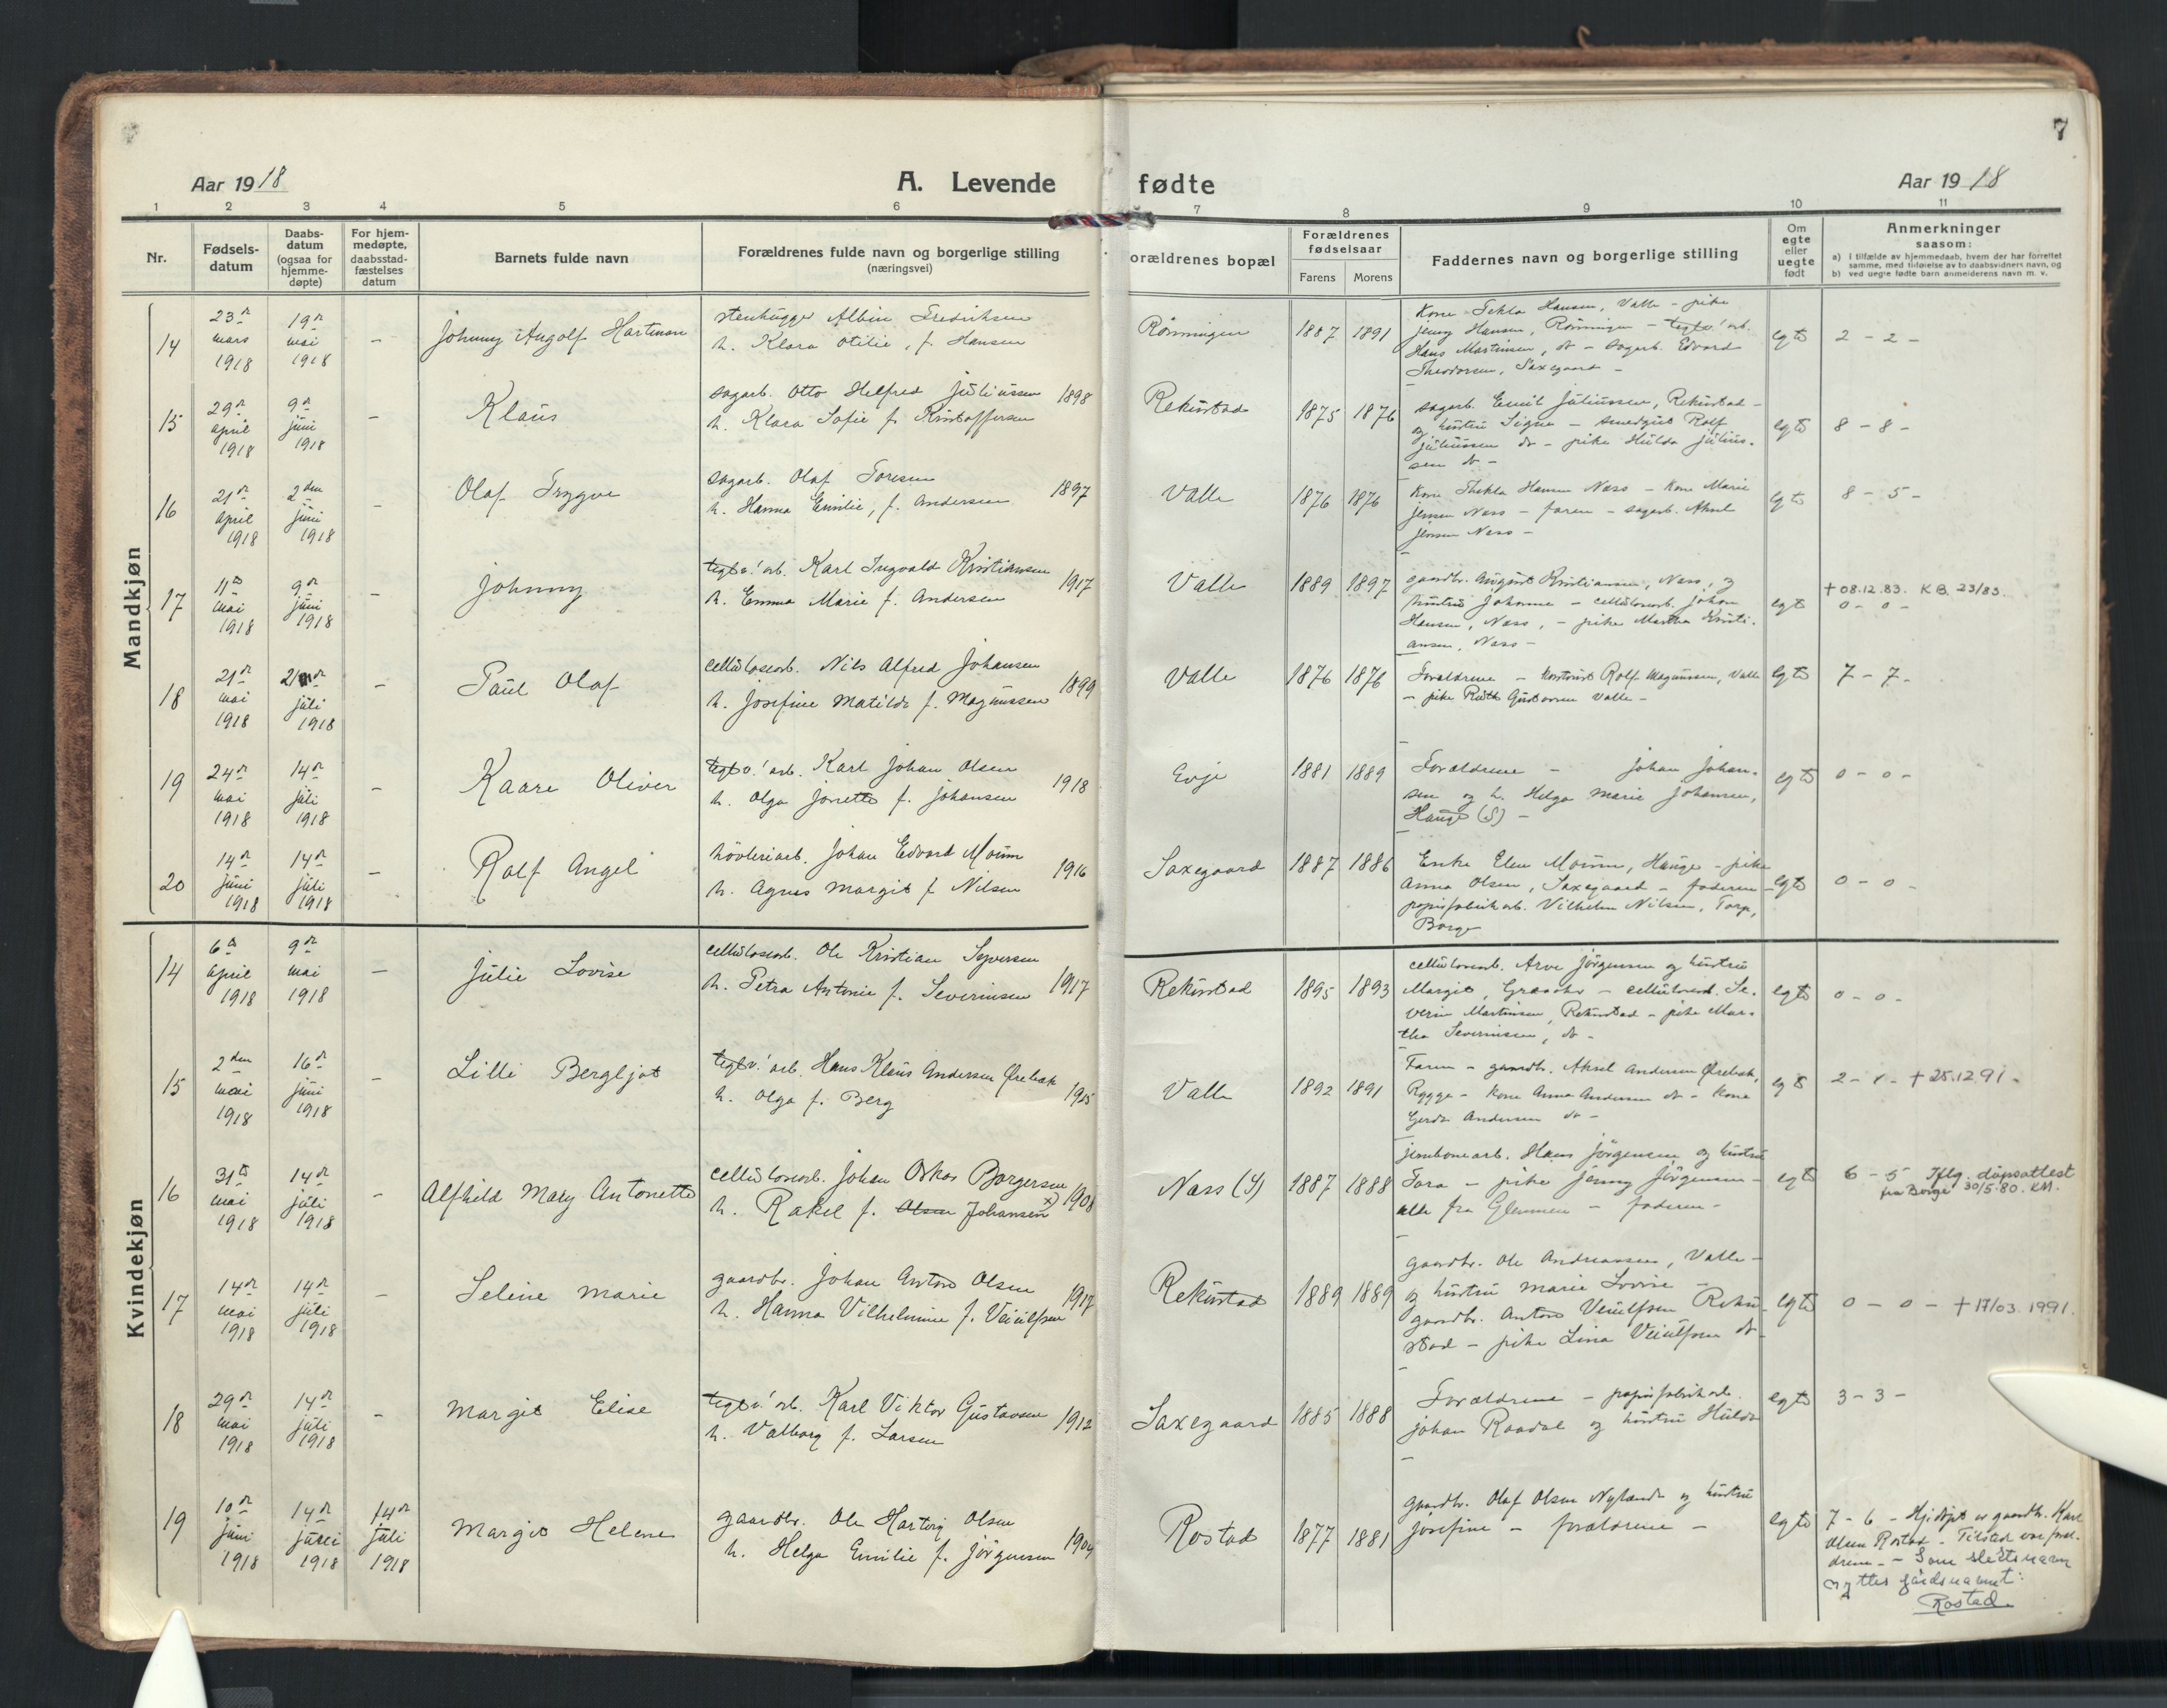 7
Aar 1918
A. Levende
fødte
Aar 1918
1 2 3 4 5 6 7 8 9 10 11
Nr.
Fødsels-
datum
Daabs-
datum
(ogsaa for
hjemme-
døpte)
For hjem-
medøpte,
daabsstad-
fæstelses
datum
Barnets fulde navn
Forældrenes fulde navn og borgerlige stilling
(næringsvei)
orældrenes bopæl
Forældrenes
fødselsaar
Farens Morens
Faddernes navn og borgerlige stilling
Om
egte
eller
uegte
født
Anmerkninger
saasom:
a) i tilfælde av hjemmedaab, hvem der har forrettet
samme, med tilføielse av to daabsvidners navn, og
b) ved uegte fødte barn anmelderens navn m. v.
Mandkjøn
14
23de
mars
1918
19de
mai
1918
-
Johnny Angolf Hartman
stenhugger Albin Fredriksen
h. Klara Otilie, f. Hansen
Rønningen
1887 1891
Kone Tekla Hansen, Valle - pike
Jenny Hansen, Rønningen - teglv. arb.
Hans Martinsen, do - sagarb. Edvard
Theodorsen, Saxegaard -
egte
2 - 2 -
15
29de
april
1918
9de
juni
1918
-
Klaus
sagarb. Otto Helfred Juliussen 1898
h. Klara Sofie f. Kristoffersen
Rekustad
1875 1876
sagarb. Emil Juliussen, Rekustad -
og hustru Signe - smedgut Rolf
Juliussen do - pike Hulda Julius-
sen do -
egte
8 - 8 -
16
21de
april
1918
2den
juni
1918
-
Olaf Trygve
sagarb. Olaf Toresen 1897
h. Hanna Emilie, f. Andersen
Valle
1876 1876
Kone Thekla Hansen Næss - Kone Marie
Jensen Næss - faren - sagarb. Aksel
Jensen Næss -
egte
8 - 5 -
17
11te
mai
1918
9de
juni
1918
-
Johnny
teglv. arb. Karl Ingvald Kristiansen 1917
h. Emma Marie f. Andersen
Valle
1889 1897
gaardbr. August Kristiansen, Næss, og
hustru Johanne - cellulosearb. Johan
Hansen, Næss, - pike Martha Kristi-
ansen, Næss -
egte
† 08.12.83. K.B. 23/83.
0 - 0 -
18
21de
mai
1918
21de
juli
1918
-
Paul Olaf
cellulosearb. Nils Alfred Johansen 1899
h. Josefine Matilde f. Magnussen
Valle
1876 1876
Forældrene - kontorist Rolf Magnussen, Valle
- pike Ruth Gustavsen Valle -
egte
7 - 7 -
19
24de
mai
1918
14de
juli
1918
-
Kaare Oliver
teglv. arb. Karl Johan Olsen 1918
h. Olga Jonette f. Johansen
Evje
1881 1889
Forældrene - Johan Johan-
sen og h. Helga Marie Johansen,
Hauge (S) -
egte
0 - 0 -
20
14de
juni
1918
14de
juli
1918
-
Rolf Angel
høvleriarb. Johan Edvard Moum 1916
h. Agnes Margit f. Nilsen
Saxegaard
1887 1886
Enke Elen Moum, Hauge - pike
Anna Olsen, Saxegaard - faderen -
papirfabrikarb. Vilhelm Nilsen, Torp,
Borge
egte
0 - 0 -
Kvindekjøn
14
6te
april
1918
9de
mai
1918
-
Julie Lovise
cellulosearb. Ole Kristian Syversen 1917
h. Petra Antonie f. Severinsen
Rekustad
1895 1893
cellulosearb. Arve Jörgensen og hustru
Margit, - cellulosearb. Se-
verin Martinsen, Rekustad - pike Mar-
tha Severinsen, do -
egte
0 - 0 -
15
2den
mai
1918
16de
juni
1918
-
Lilli Bergljot
teglv. arb. Hans Klaus Andersen Ørebæk 1925
h. Olga f. Berg
Valle
1892 1891
Faren - gaardbr. Aksel Andersen Ørebæk,
Rygge - Kone Anna Andersen do - Kone
Gerda Andersen do -
egte
2 - 2 - † 25.12.91 -
16
31te
mai
1918
14de
juli
1918
-
Alfhild Mary Antonette
cellulosearb. Johan Oskar Borgersen 1908
h. Rakel f. Olsen Johansen x)
Næss (Y)
1887 1888
jernbanearb. Hans Jörgensen og hustru
Tora - pike Jenny Jörgensen -
alle fra Glemmen - faderen -
egte
6 - 5 Iflg. dåpsattest
fra Borge 30/5.80. KM.
17
14de
mai
1918
14de
juli
1918
-
Seline Marie
gaardbr. Johan Anton Olsen 1917
h. Hanna Vilhelmine f. Veiulfsen
Rekustad
1889 1889
gaardbr. Ole Andreassen, Valle -
og hustru Marie Lovise -
gaardbr. Anton Veiulfsen Reku-
stad - pike Lina Veiulfsen do -
egte
0 - 0 - † 17/03.1991.
18
29de
mai
1918
14de
juli
1918
-
Margit Elise
teglv. arb. Karl Viktor Gustavsen 1912
h. Valborg f. Larsen
Saxegaard
1885 1888
Forældrene - papirfabrikarb.
Johan Raadal og hustru Hulda
egte
3 - 3 -
19
10de
juni
1918
14de
juli
1918
14de
juli
1918
Margit Helene
gaardbr. Ole Hartvig Olsen 1904
h. Helga Emilie f. Jörgensen
Rostad
1877 1881
gaardbr. Olaf Olsen Nylænde og hustru
Josefine - forældrene -
egte
7 - 6 - Hj.døpt av gaardbr. Karl
Olsen Rostad - Tilstede var foræl-
drene - - Som slektsnavn
nyttes gårdsnamnet:
Rostad